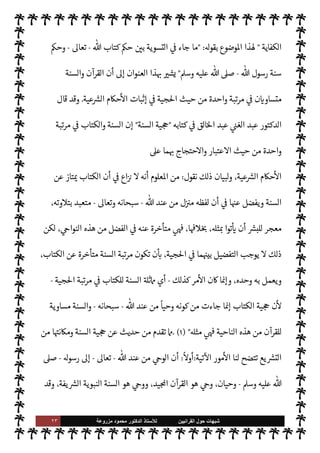 الكفاية " لهذا الموضوع بقوله: "ما جاء في التسوية بين حكم كتاب الله - تعالى - وحكم
سنة رسول الله - صلى الله عليه وسلم" يشير بهذا العنوان إلى أن القرآن والسنة
متساويان في مرتبة واحدة من حيث الحجية في إثبات الأحكام الشرعية. وقد قال
الدكتور عبد الغني عبد الخالق في كتابه "حجية السنة" إن السنة والكتاب في مرتبة
واحدة من حيث الاعتبار والاحتجاج بهما على
الأحكام الشرعية، ولبيان ذلك نقول: من المعلوم أنه لا نزاع في أن الكتاب يمتاز عن
السنة ويفضل عنها في أن لفظه منزل من عند الله - سبحانه وتعالى - متعبد بتلاوته،
معجز للبشر أن يأتوا بمثله، بخلافها، فهي متأخرة عنه في الفضل من هذه النواحي، لكن
ذلك لا يوجب التفضيل بينهما في الحجية، بأن تكون مرتبة السنة متأخرة عن الكتاب،
ويعمل به وحده، وإنما كان الأمر كذلك - أي مماثلة السنة للكتاب في مرتبة الحجية -
لأن حجية الكتاب إنما جاءت من كونه وحياً من عند الله - سبحانه - والسنة مساوية
للقرآن من هذه الناحية فهي مثله" (١) .مما تقدم من حديث عن حجية السنة ومكانتها من
التشريع تتضح لنا الأمور الآتية:أولاً: أن الوحي من عند الله - تعالى - إلى رسوله - صلى
الله عليه وسلم - وحيان، وحي هو القرآن المجيد، ووحي هو السنة النبوية الشريفة، وقد
شبهات حول القرآنيين للأستاذ الدكتور محمود مزروعة ٢٣